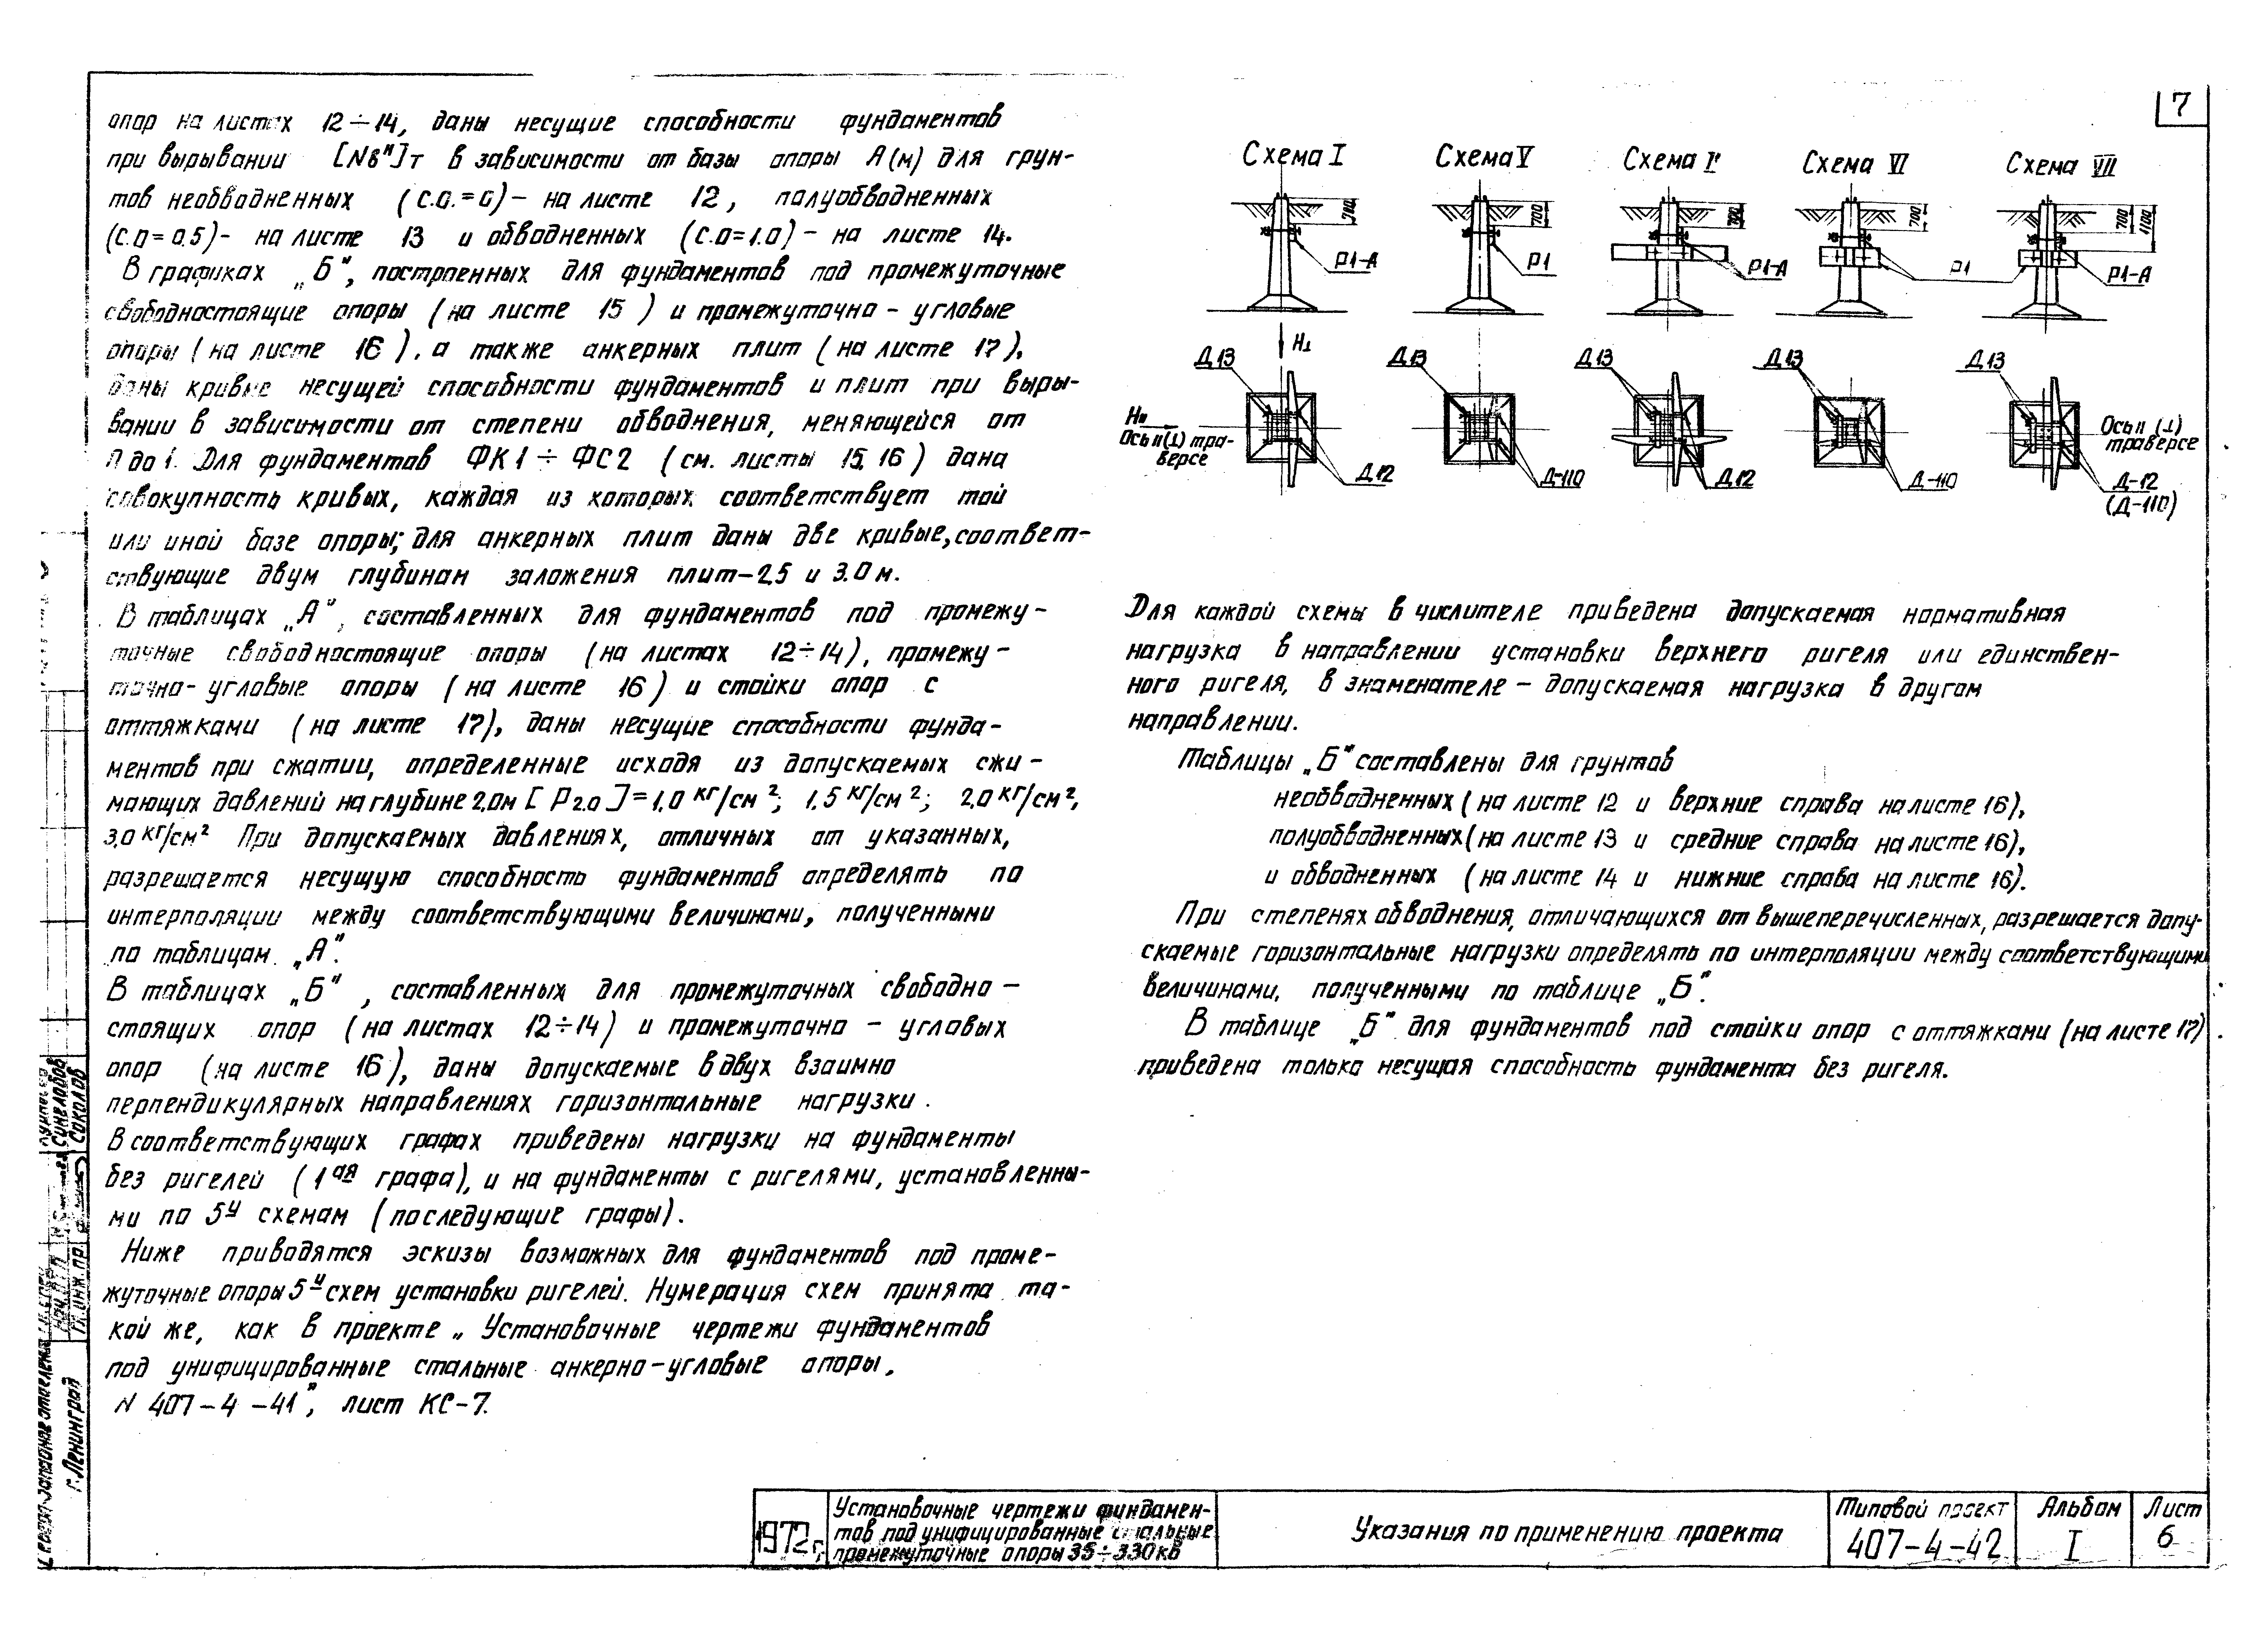 7
опор на листах 12÷14, даны несущие способности фундаментов
при вырывании [Nвᴴ]т в зависимости от базы опоры А(м) для грун-
тов необводненных (С.О.=0) – на листе 12, полуобводненных
(С.О=0,5) – на листе 13 и обводненных (С.О=1.0) – на листе 14.
В графиках „Б", построенных для фундаментов под промежуточные
свободностоящие опоры (на листе 15) и промежуточно – угловые
опоры (на листе 16), а также анкерных плит (на листе 17),
даны кривые несущей способности фундаментов и плит при выры-
вании в зависимости от степени обводнения, меняющейся от
0 до 1. Для фундаментов ФК1 ÷ ФС2 (см. листы 15, 16) дана
совокупность кривых, каждая из которых соответствует той
или иной базе опоры; для анкерных плит даны две кривые, соответ-
ствующие двум глубинам заложения плит – 2,5 и 3.0 м.
В таблицах „А", составленных для фундаментов под промежу-
точные свободностоящие опоры (на листах 12÷14), промежу-
точно-угловые опоры (на листе 16) и стойки опор с
оттяжками (на листе 17), даны несущие способности фунда-
ментов при сжатии, определенные исходя из допускаемых сжи-
мающих давлений на глубине 2,0м [P2.0] = 1,0 кг/см²; 1,5 кг/см²; 2,0 кг/см²,
3,0 кг/см² При допускаемых давлениях, отличных от указанных,
разрешается несущую способность фундаментов определять по
интерполяции между соответствующими величинами, полученными
по таблицам „А".
В таблицах „Б", составленных для промежуточных свободно –
стоящих опор (на листах 12÷14) и промежуточно – угловых
опор (на листе 16), даны допускаемые в двух взаимно
перпендикулярных направлениях горизонтальные нагрузки.
В соответствующих графах приведены нагрузки на фундаменты
без ригелей (1ая графа), и на фундаменты с ригелями, установленны-
ми по 5и схемам (последующие графы).
Ниже приводятся эскизы возможных для фундаментов под проме-
жуточные опоры 5и схем установки ригелей. Нумерация схем принята та-
кой же, как в проекте „Установочные чертежи фундаментов
под унифицированные стальные анкерно-угловые опоры,
N 407-4-41", лист КС-7.
Схема I Схема V Схема I' Схема VI Схема VII
700 700 700 700 700 1100
Р1-А Р1 Р1-А Р1 Р1-А
Н⊥
Д13 Д13 Д13 Д13 Д13
НII
Ось II (⊥) тра-
версе
Ось II (⊥)
траверсе
Д12 Д-110 Д12 Д-110 Д-12
(Д-110)
Для каждой схемы в числителе приведена допускаемая нормативная
нагрузка в направлении установки верхнего ригеля или единствен-
ного ригеля, в знаменателе – допускаемая нагрузка в другом
направлении.
Таблицы „Б" составлены для грунтов
необводненных (на листе 12 и верхние справа на листе 16),
полуобводненных (на листе 13 и средние справа на листе 16),
и обводненных (на листе 14 и нижние справа на листе 16).
При степенях обводнения, отличающихся от вышеперечисленных, разрешается допу-
скаемые горизонтальные нагрузки определять по интерполяции между соответствующими
величинами, полученными по таблице „Б".
В таблице „Б" для фундаментов под стойки опор с оттяжками (на листе 17)
приведена только несущая способность фундамента без ригеля.
Синелобов
Соколов
Гл. инж. пр.
Северо-западное отделение
г. Ленинград
1972 г.
Установочные чертежи фундамен-
тов под унифицированные стальные
промежуточные опоры 35÷330кв
Указания по применению проекта
Типовой проект
407-4-42
Альбом
I
Лист
6